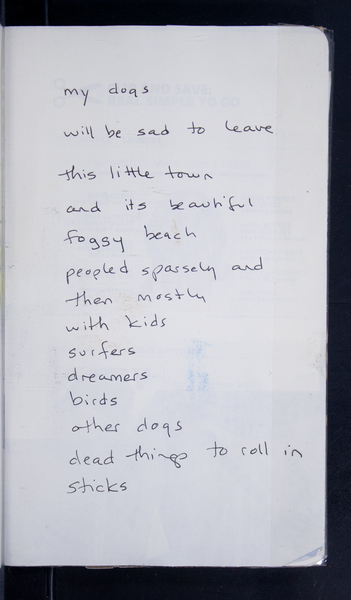 my dogs
will be sad to leave
this little town
and its beautiful
foggy beach
peopled sparsely and
then mostly
with kids
surfers
dreamers
birds
other dogs
dead things to roll in
sticks